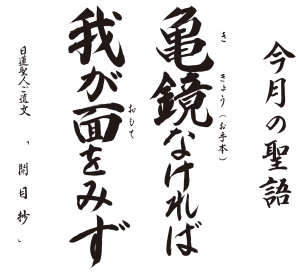 今月の聖語
亀鏡なければ
き きょう(お手本)
我が面をみず
おもて
日蓮聖人ご遺文 「開目抄」